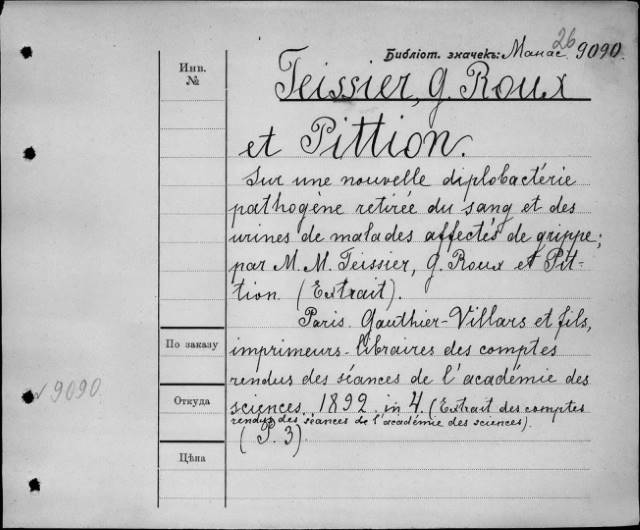 26
Библіот. значекъ: Манас 9090.
Инв.
№
Teissier, G. Roux
et Pittion.
Sur une nouvelle diplobactérie
pathogène retirée du sang et des
urines de malades affectés de grippe;
par M. M. Teissier, G. Roux et Pit-
tion. (Extrait).
Paris. Gauthier-Villars et fils,
По заказу
imprimeurs-libraires des comptes
9090
rendus des séances de l'académie des
Откуда
sciences. 1892. in 4. (Extrait des comptes
rendus des séances de l'académie des sciences).
(P. 3).
Цѣна